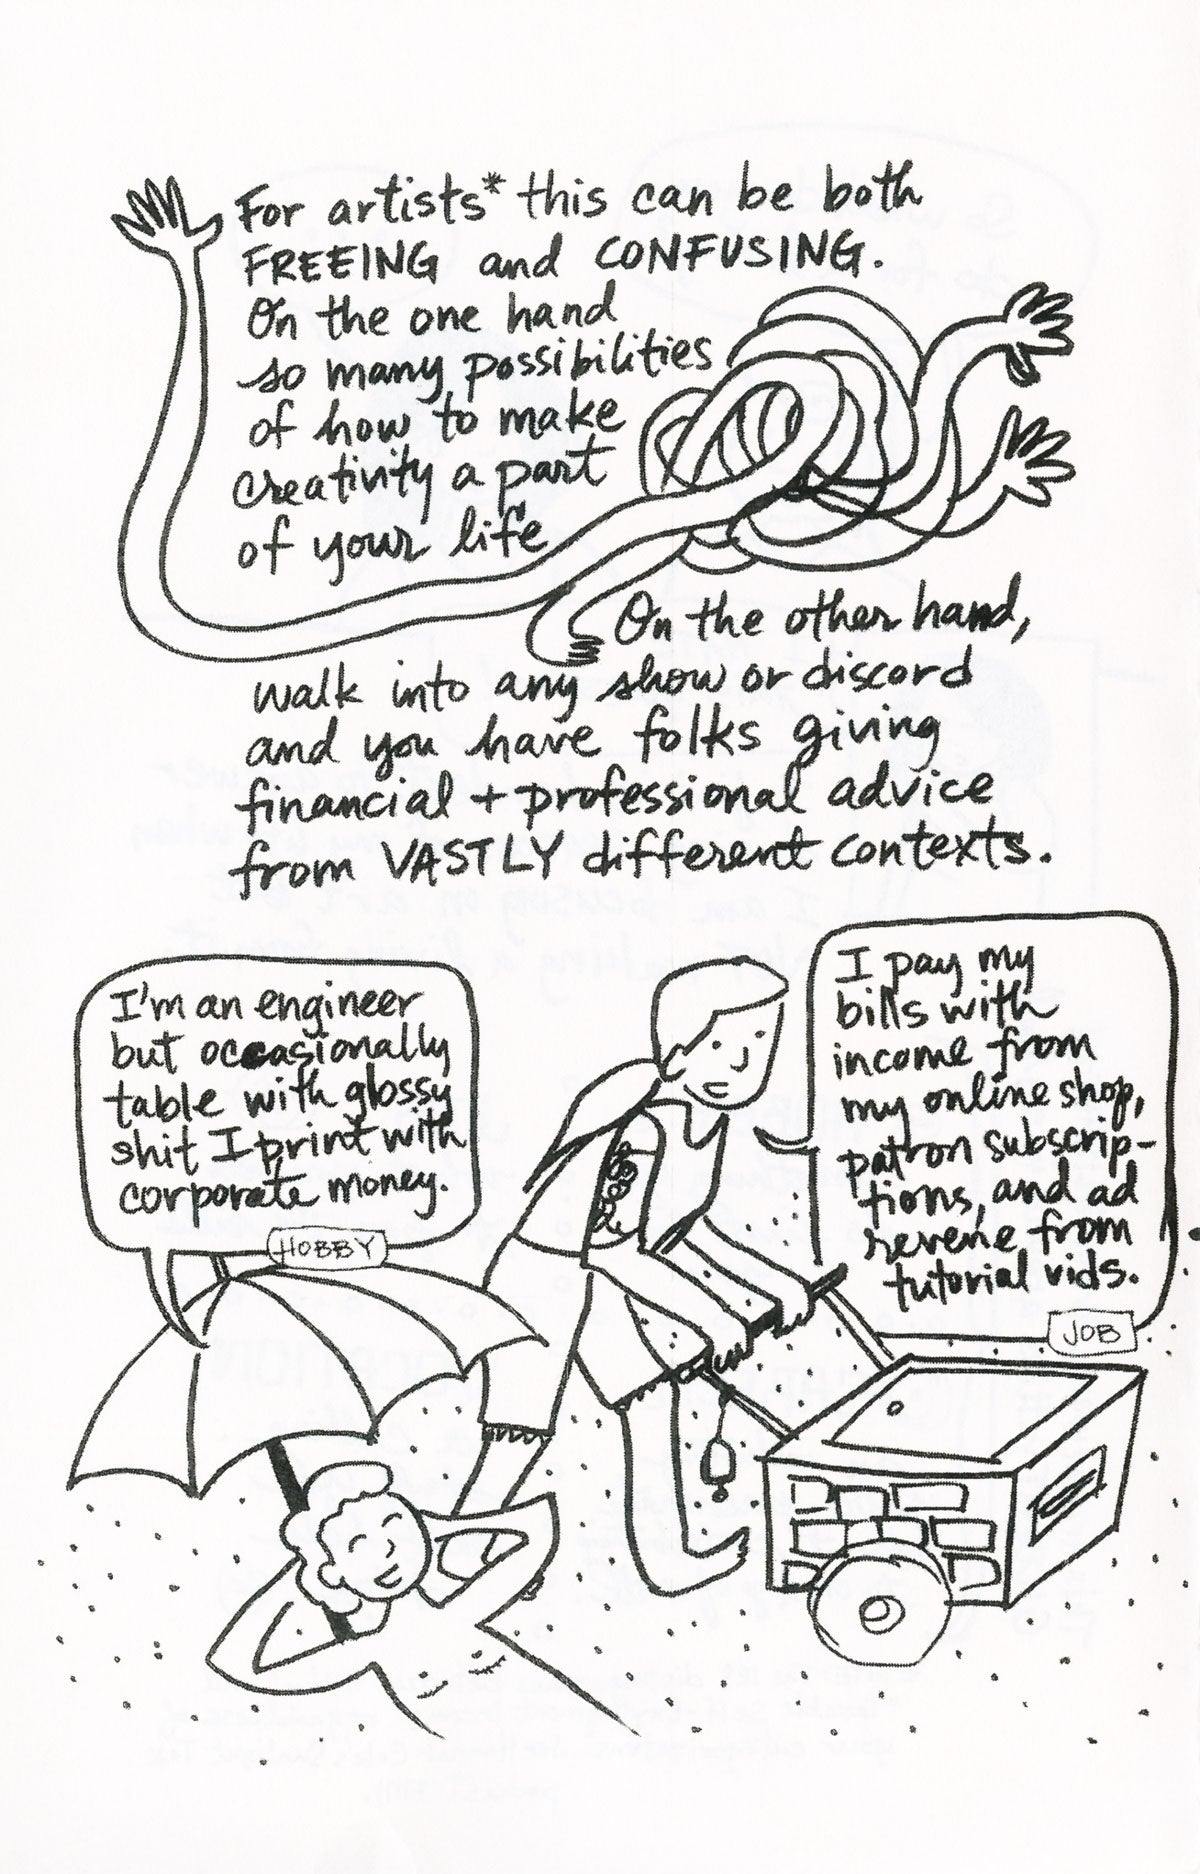 For artists* this can be both
FREEING and CONFUSING.
On the one hand
so many possibilities
of how to make
creativity a part
of your life
On the other hand,
walk into any show or discord
and you have folks giving
financial + professional advice
from VASTLY different contexts.
I'm an engineer
but occasionally
table with glossy
shit I print with
corporate money.
HOBBY
I pay my
bills with
income from
my online shop,
patron subscrip-
tions, and ad
revenue from
tutorial vids.
JOB